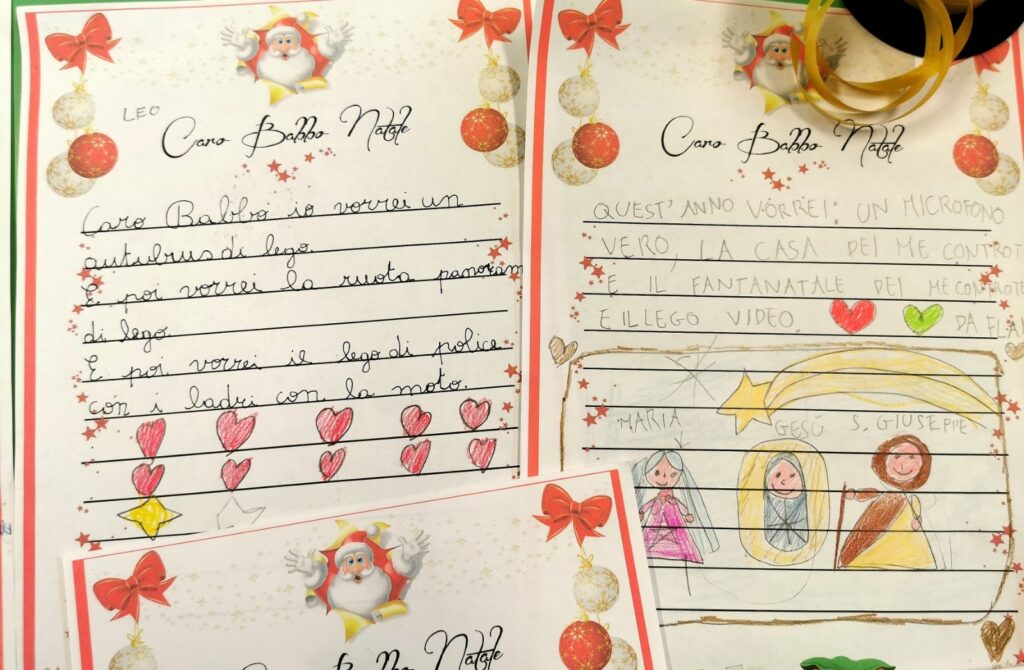 LEO
Caro Babbo Natale
Caro Babbo io vorrei un
autubus di lego.
E poi vorrei la ruota panoram
di lego.
E poi vorrei il lego di police
con i ladri con la moto.
Caro Babbo Natale
QUEST'ANNO VORREI: UN MICROFONO
VERO, LA CASA DEI ME CONTROT
E IL FANTANATALE DEI ME CONTROTE
E IL LEGO VIDEO. DA FLA
MARIA GESÙ S. GIUSEPPE
Caro Babbo Natale